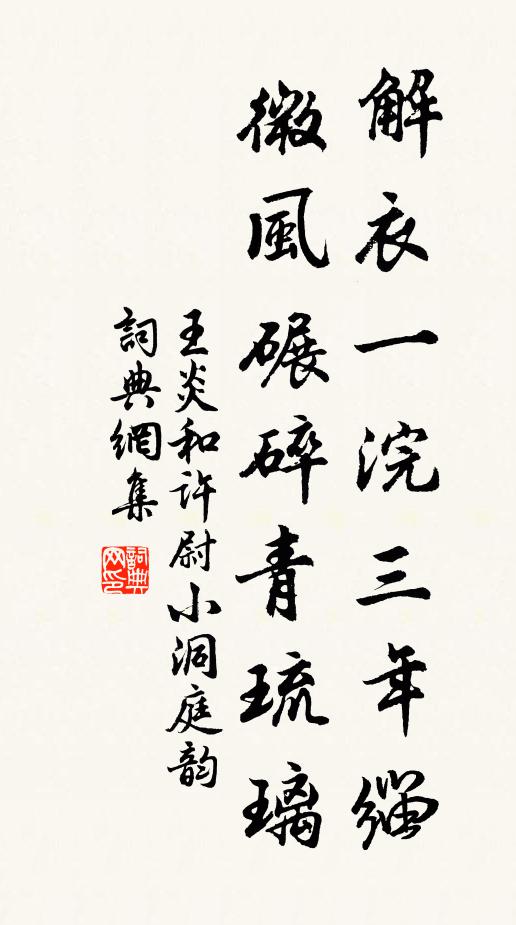 解衣一浣三年緇
微風碾碎青琉璃
王炎和許尉小洞庭韵
詞典網集
詞典
网印